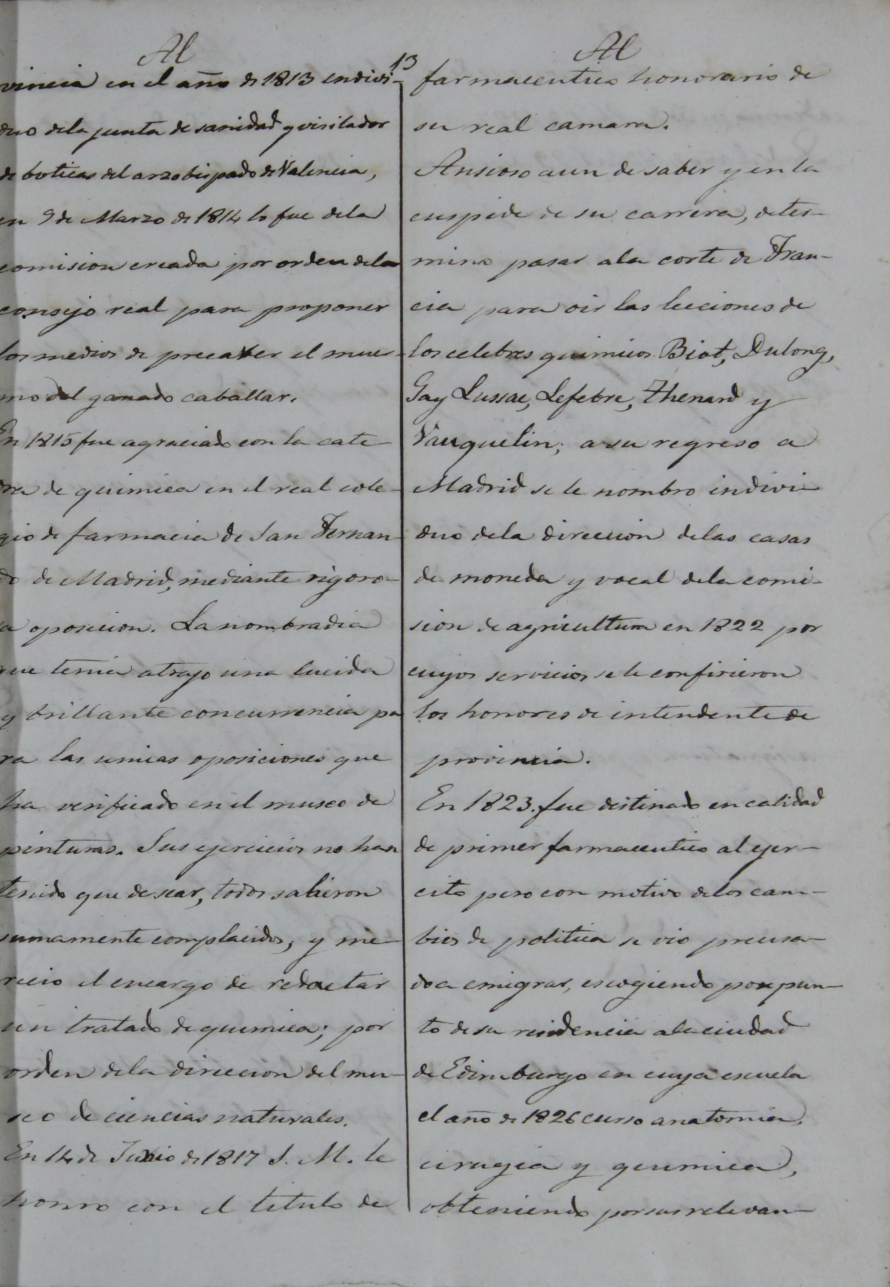 Al
13
vincia en el año de 1813 indivi-
duo dela junta de sanidad y visitador
de boticas del arzobispado de Valencia,
en 9 de Marzo de 1814 lo fue dela
comision creada por orden dela
consejo real para proponer
los medios de precaver el muer-
mo del ganado caballar.
En 1815 fue agraciado con la cate-
dra de quimica en el real cole-
gio de farmacia de San Fernan-
do de Madrid, mediante rigoro-
a oposicion. La nombradia
que tenia atrajo una lucida
y brillante concurrencia pa
ra las unicas oposiciones que
ha verificado en el museo de
pinturas. Sus ejercicios no han
tenido que desear, todos salieron
sumamente complacidos, y me-
recio el encargo de redactar
un tratado de quimica; por
orden dela direccion del mu-
seo de ciencias naturales.
En 14 de Junio de 1817 S. M. le
honro con el titulo de
Al
farmaceutico honorario de
su real camara.
Ansioso aun de saber y en la
cuspide de su carrera, deter-
mino pasar ala corte de Fran-
cia para oir las lecciones de
los celebres quimicos Biot, Dulong,
Gay Lussac, Lefebre, Thenard y
Vauquelin; a su regreso a
Madrid se le nombro indivi-
duo dela direccion delas casas
de moneda y vocal dela comi-
sion de agricultura en 1822 por
cuyos servicios se le confirieron
los honores de intendente de
provincia.
En 1823. fue destinado en calidad
de primer farmaceutico al ejer-
cito pero con motivo delos cam-
bios de politica se vio precisa-
do a emigrar, escogiendo por pun-
to de su residencia ala ciudad
de Edimburgo en cuya escuela
el año de 1826 curso anatomia,
cirugia y quimica,
obteniendo por sus relevan-